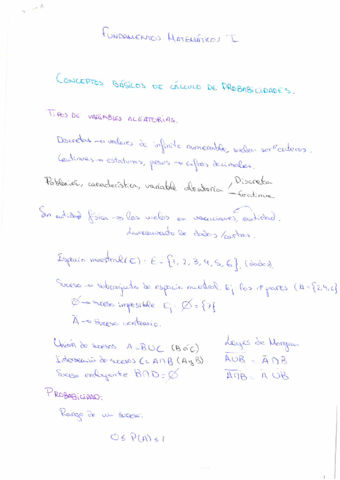 FUNDAMENTOS MATEMÁTICOS I
CONCEPTOS BÁSICOS DE CÁLCULO DE PROBABILIDADES.
TIPOS DE VARIABLES ALEATORIAS.
Discretas → valores de infinito numerable, suelen ser enteros.
Continuas → estaturas, pesos → cifras decimales.
Población, característica, variable aleatoria
Discreta
Continua
Sin entidad física → los vuelos en vacaciones, cantidad.
Lanzamiento de dados/cartas.
Espacio muestral (E): E = {1, 2, 3, 4, 5, 6}, (dado).
Suceso → subconjunto de espacio muestral. Ej. los nº pares (A = {2,4,6}
Ø → suceso imposible Ej: Ø = {7}
Ā → suceso contrario.
Unión de sucesos A = B∪C (B ó C)
Leyes de Morgan
Intersección de sucesos C = A∩B (A y B)
Suceso excluyente B∩D = Ø
PROBABILIDAD:
Rango de un suceso
0 ≤ P(A) ≤ 1